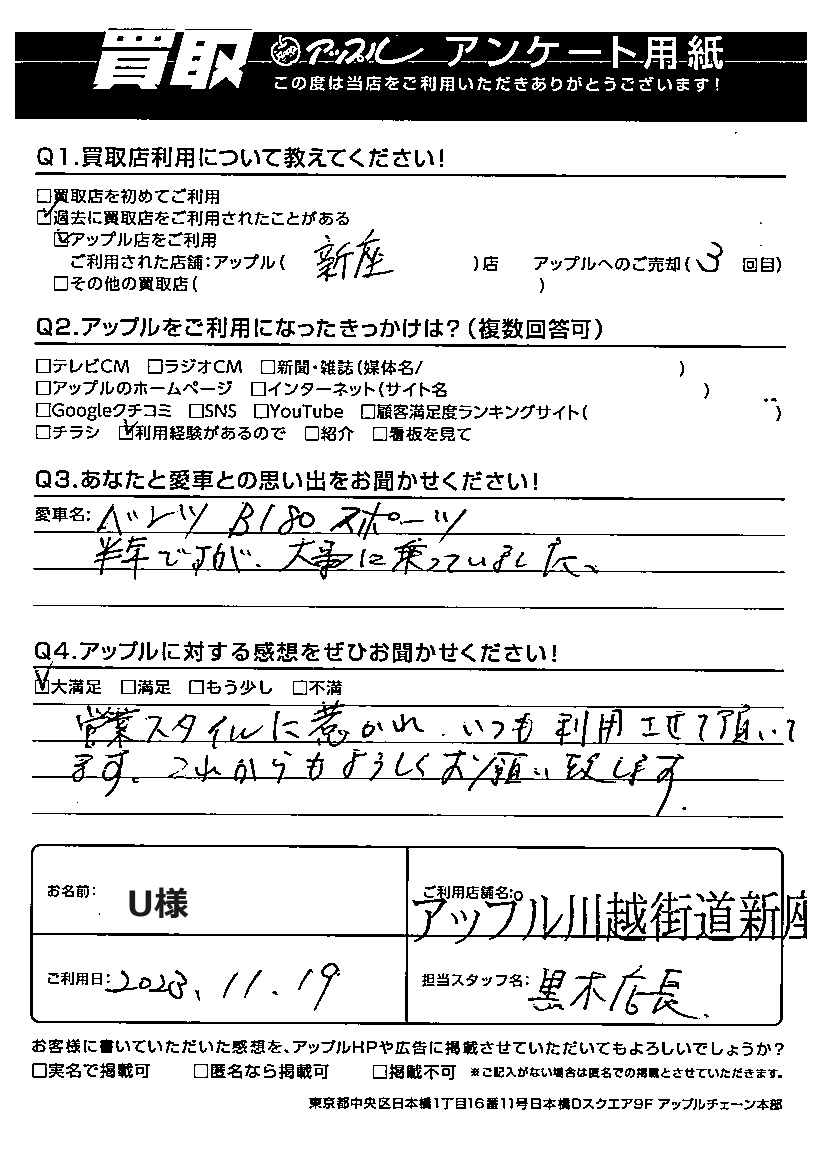 買取 アップル アンケート用紙
この度は当店をご利用いただきありがとうございます!
Q1.買取店利用について教えてください!
□買取店を初めてご利用
☑過去に買取店をご利用されたことがある
☑アップル店をご利用
ご利用された店舗:アップル( 新座 )店 アップルへのご売却( 3 回目)
□その他の買取店( )
Q2.アップルをご利用になったきっかけは?(複数回答可)
□テレビCM □ラジオCM □新聞・雑誌(媒体名/ )
□アップルのホームページ □インターネット(サイト名 )
□Googleクチコミ □SNS □YouTube □顧客満足度ランキングサイト( )
□チラシ ☑利用経験があるので □紹介 □看板を見て
Q3.あなたと愛車との思い出をお聞かせください!
愛車名: ベンツ B180 スポーツ
半年ですが、大事に乗っていました。
Q4.アップルに対する感想をぜひお聞かせください!
☑大満足 □満足 □もう少し □不満
営業スタイルに惹かれ、いつも利用させて頂いて
ます。これからもよろしくお願い致します。
お名前: U様
ご利用店舗名:
アップル川越街道新座
ご利用日: 2023. 11. 19
担当スタッフ名: 黒木店長
お客様に書いていただいた感想を、アップルHPや広告に掲載させていただいてもよろしいでしょうか?
□実名で掲載可 □匿名なら掲載可 □掲載不可 ※ご記入がない場合は匿名での掲載とさせていただきます。
東京都中央区日本橋1丁目16番11号日本橋Dスクエア9F アップルチェーン本部